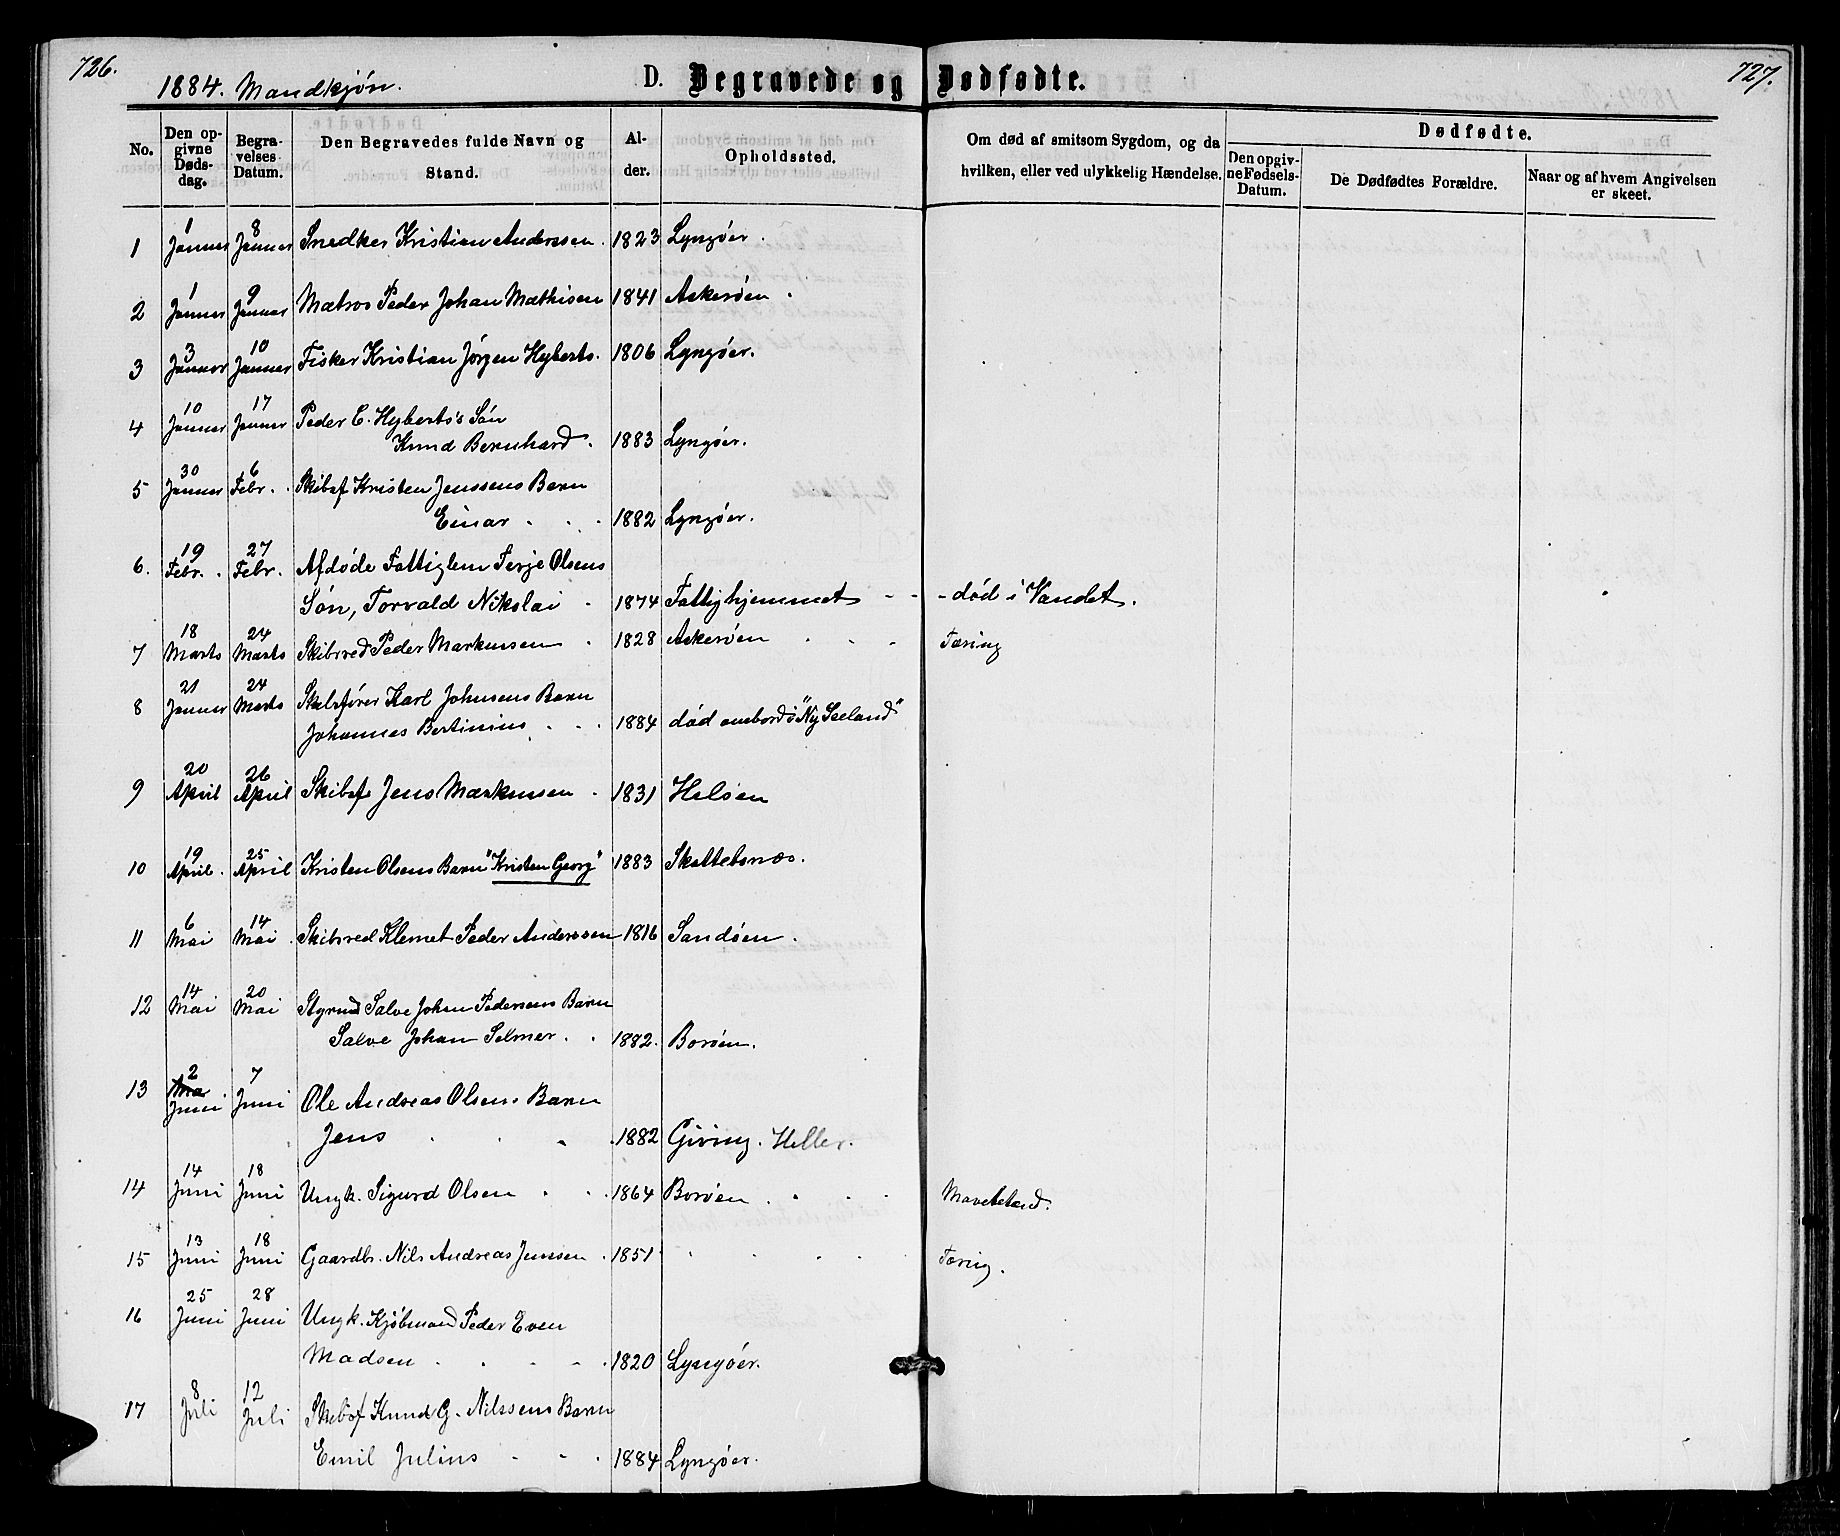 726.
1884. Mandkjøn.
D. Begravede og Dødfødte.
727.
No.
Den opgivne Dødsdag.
Begravelses Datum.
Den Begravedes fulde Navn og Stand.
Alder.
Opholdssted.
Om død af smitsom Sygdom, og da hvilken, eller ved ulykkelig Hændelse.
Dødfødte.
Den opgivne Fødsels-Datum.
De Dødfødtes Forældre.
Naar og af hvem Angivelsen er skeet.
1 1 Januar 8 Januar Snedker Kristian Anderssen. 1823 Lyngøer.
2 1 Januar 9 Januar Matros Peder Johan Mathisen 1841 Askerøen.
3 3 Januar 10 Januar Fisker Kristian Jørgen Hyberts. 1806 Lyngøer.
4 10 Januar 17 Januar Peder C. Hyberts's Søn
Knud Bernhard. 1883 Lyngøer.
5 30 Januar 6 Febr. Skibsf Kristen Jenssens Barn
Einar 1882 Lyngøer.
6. 19 Febr. 27 Febr. Afdøde Fattiglem Terje Olsens
Søn, Torvald Nikolai 1874 Fattighjemmet - - død i Vandet.
7 18 Marts 24 Marts Skibsred Peder Markussen 1828 Askerøen Tæring
8 21 Januar 24 Marts Skibsfører Karl Johnsens Barn
Johannes Bertinius 1884 død ombord i "Ny Seeland"
9 20 April 26 April Skibsf Jens Markussen 1831 Heløen
10 19 April. 25 April Kristen Olsens Barn "Kristen Georg" 1883 Skottetsnæs.
11 6 Mai 14 Mai Skibsred Klemet Peder Anderssen 1816 Sandøen.
12 14 Mai 20 Mai Styrmd Salve Johan Pedersens Barn
Salve Johan Selmer. 1882. Borøen.
13 2 Juni 7 Juni Ole Andreas Olsens Barn
Jens 1882 Giving. Heller.
14 14 Juni 18 Juni Ungk. Sigurd Olsen 1864 Borøen Mavebetænd.
15 13 Juni 18 Juni Gaardbr. Nils Andreas Jenssen 1851 Tæring.
16 25 Juni 28 Juni Ungk. Kjøbmand Peder Even
Madsen 1820 Lyngøer.
17 8 Juli 12 Juli Skibsf Knud G. Nilssens Barn
Emil Julius 1884 Lyngøer.